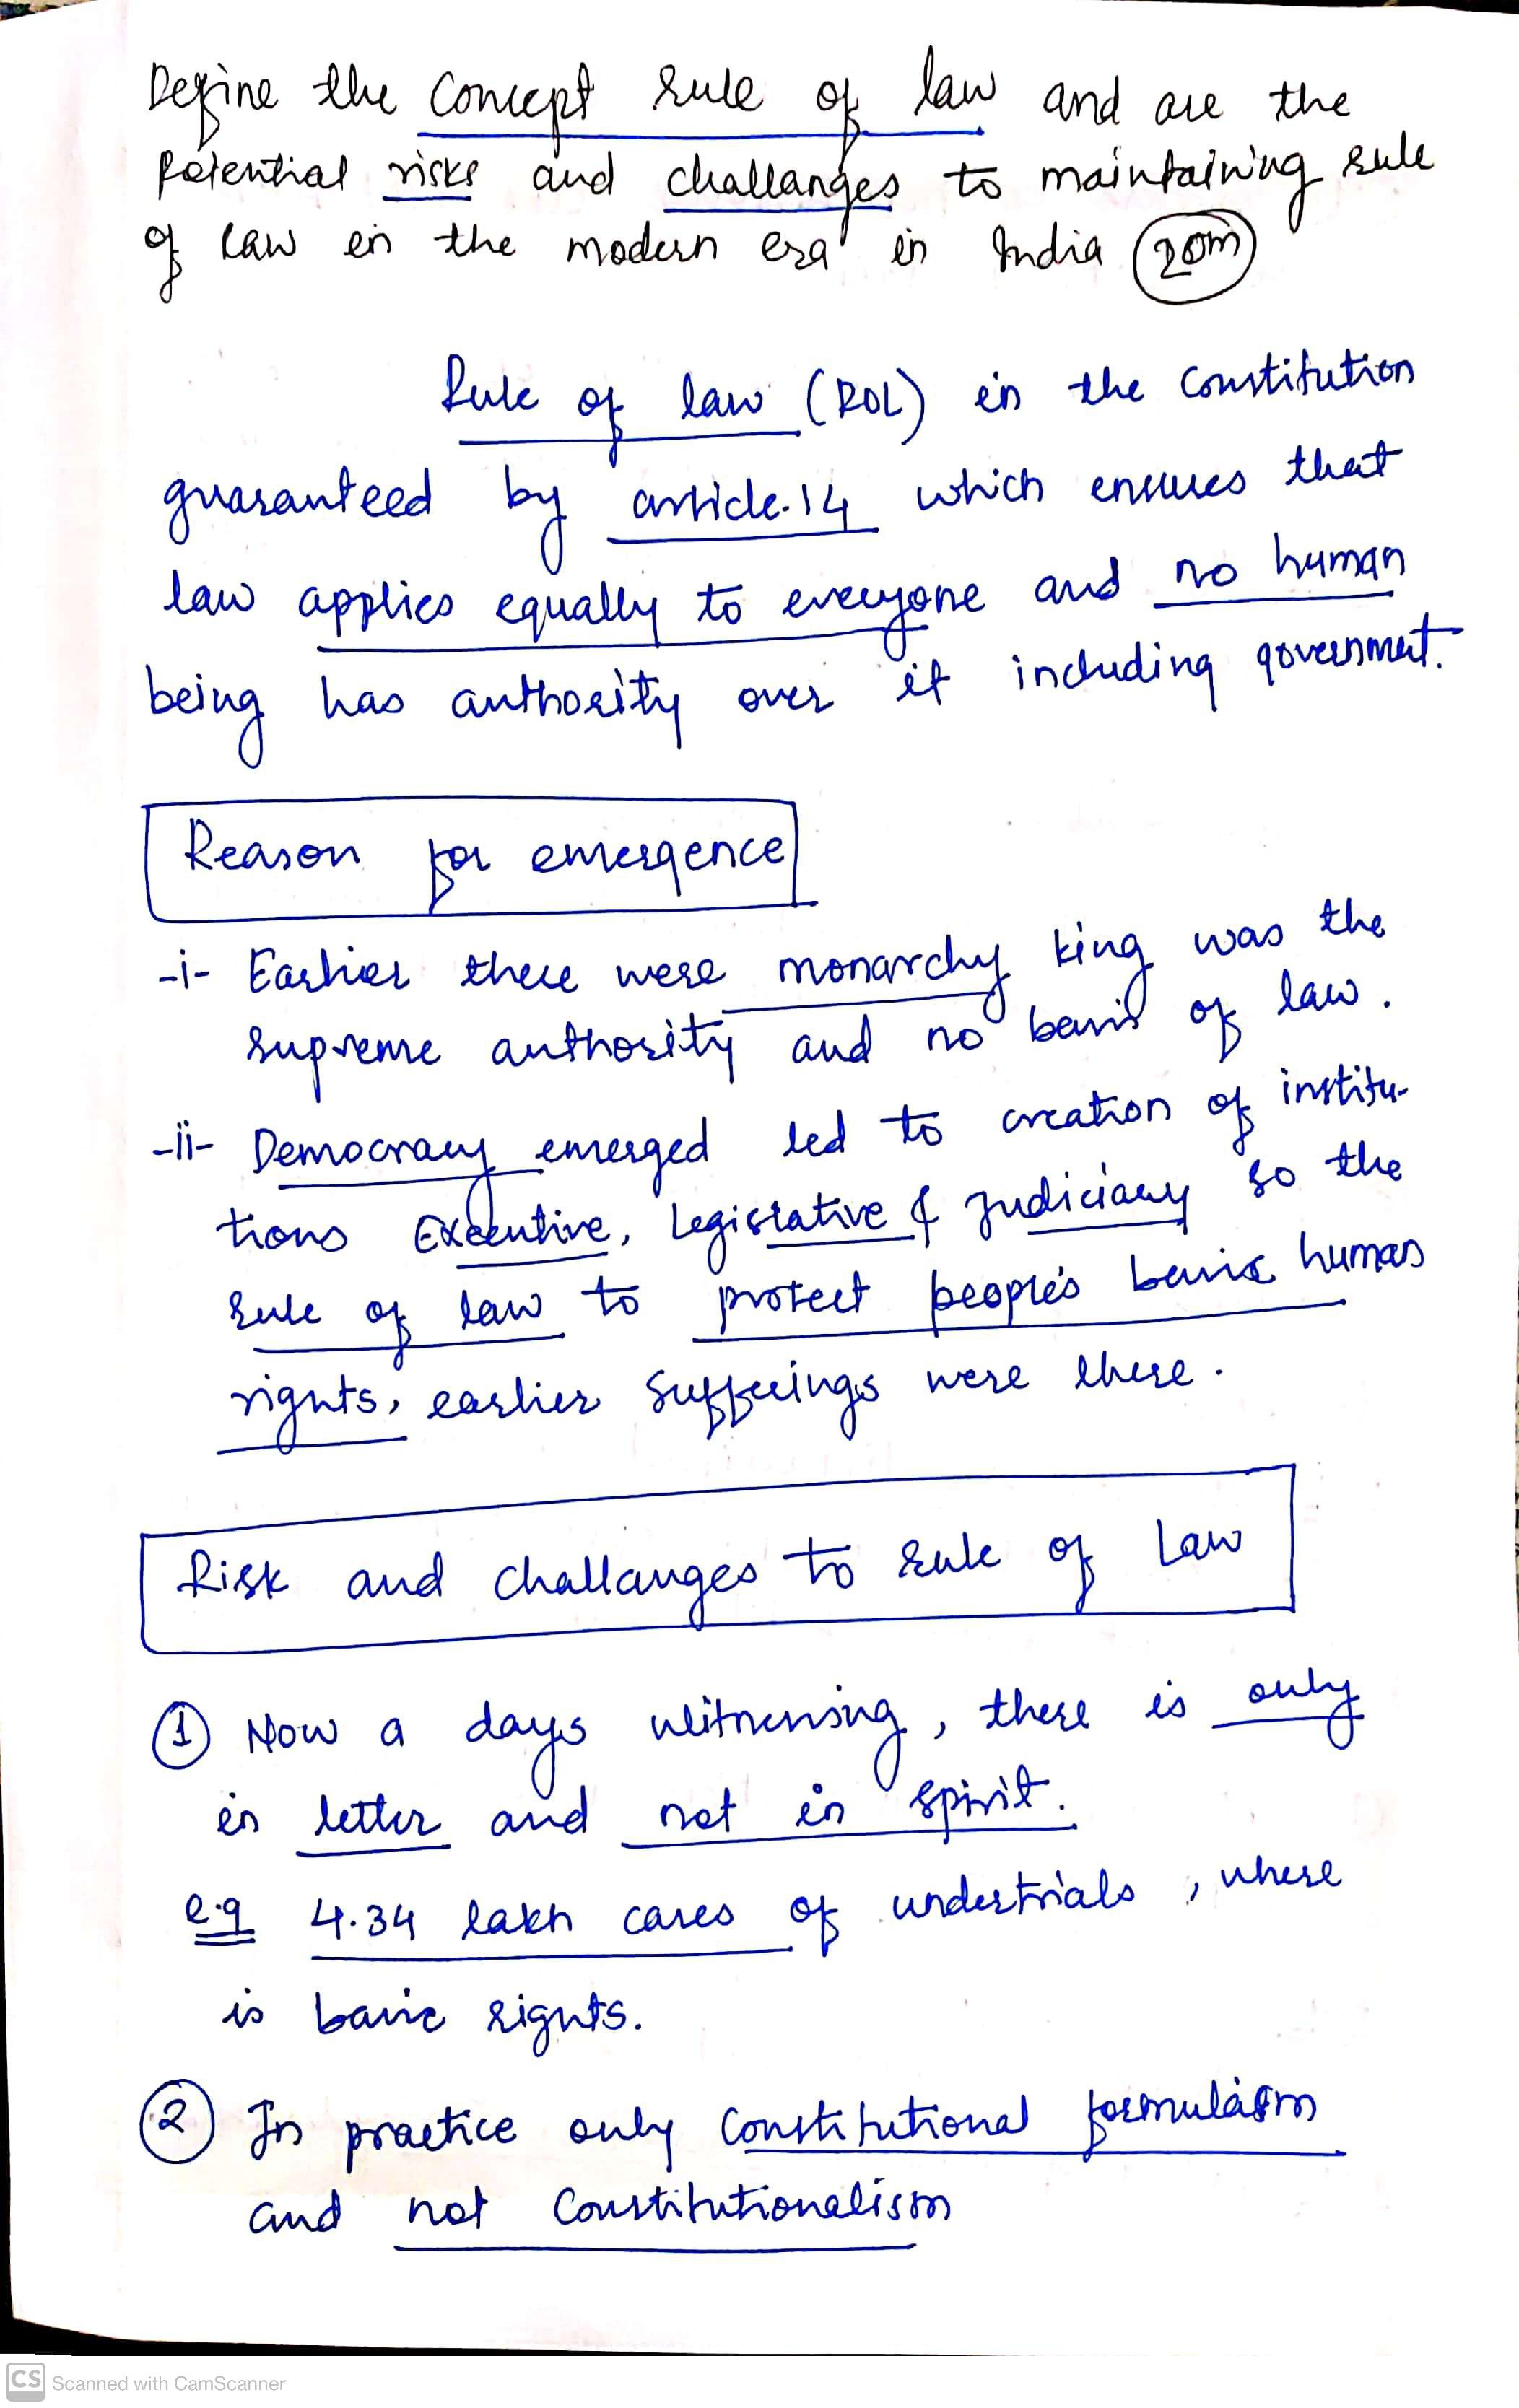 Define the concept rule of law and are the
potential risks and challanges to maintaining rule
of law in the modern era in India (20m)
Rule of law (ROL) in the constitution
guaranteed by article.14 which ensures that
law applies equally to everyone and no human
being has authority over it including government.
Reason for emergence
-i- Earlier there were monarchy king was the
supreme authority and no basis of law.
-ii- Democracy emerged led to creation of institu-
tions Executive, Legislative & Judiciary so the
rule of law to protect people's basic human
rights, earlier sufferings were there.
Risk and challanges to rule of Law
① Now a days witnessing, there is only
in letter and not in spirit.
e.g 4.34 lakh cases of undertrials, where
is basic rights.
② In practice only Constitutional formulaism
and not Constitutionalism
CS Scanned with CamScanner